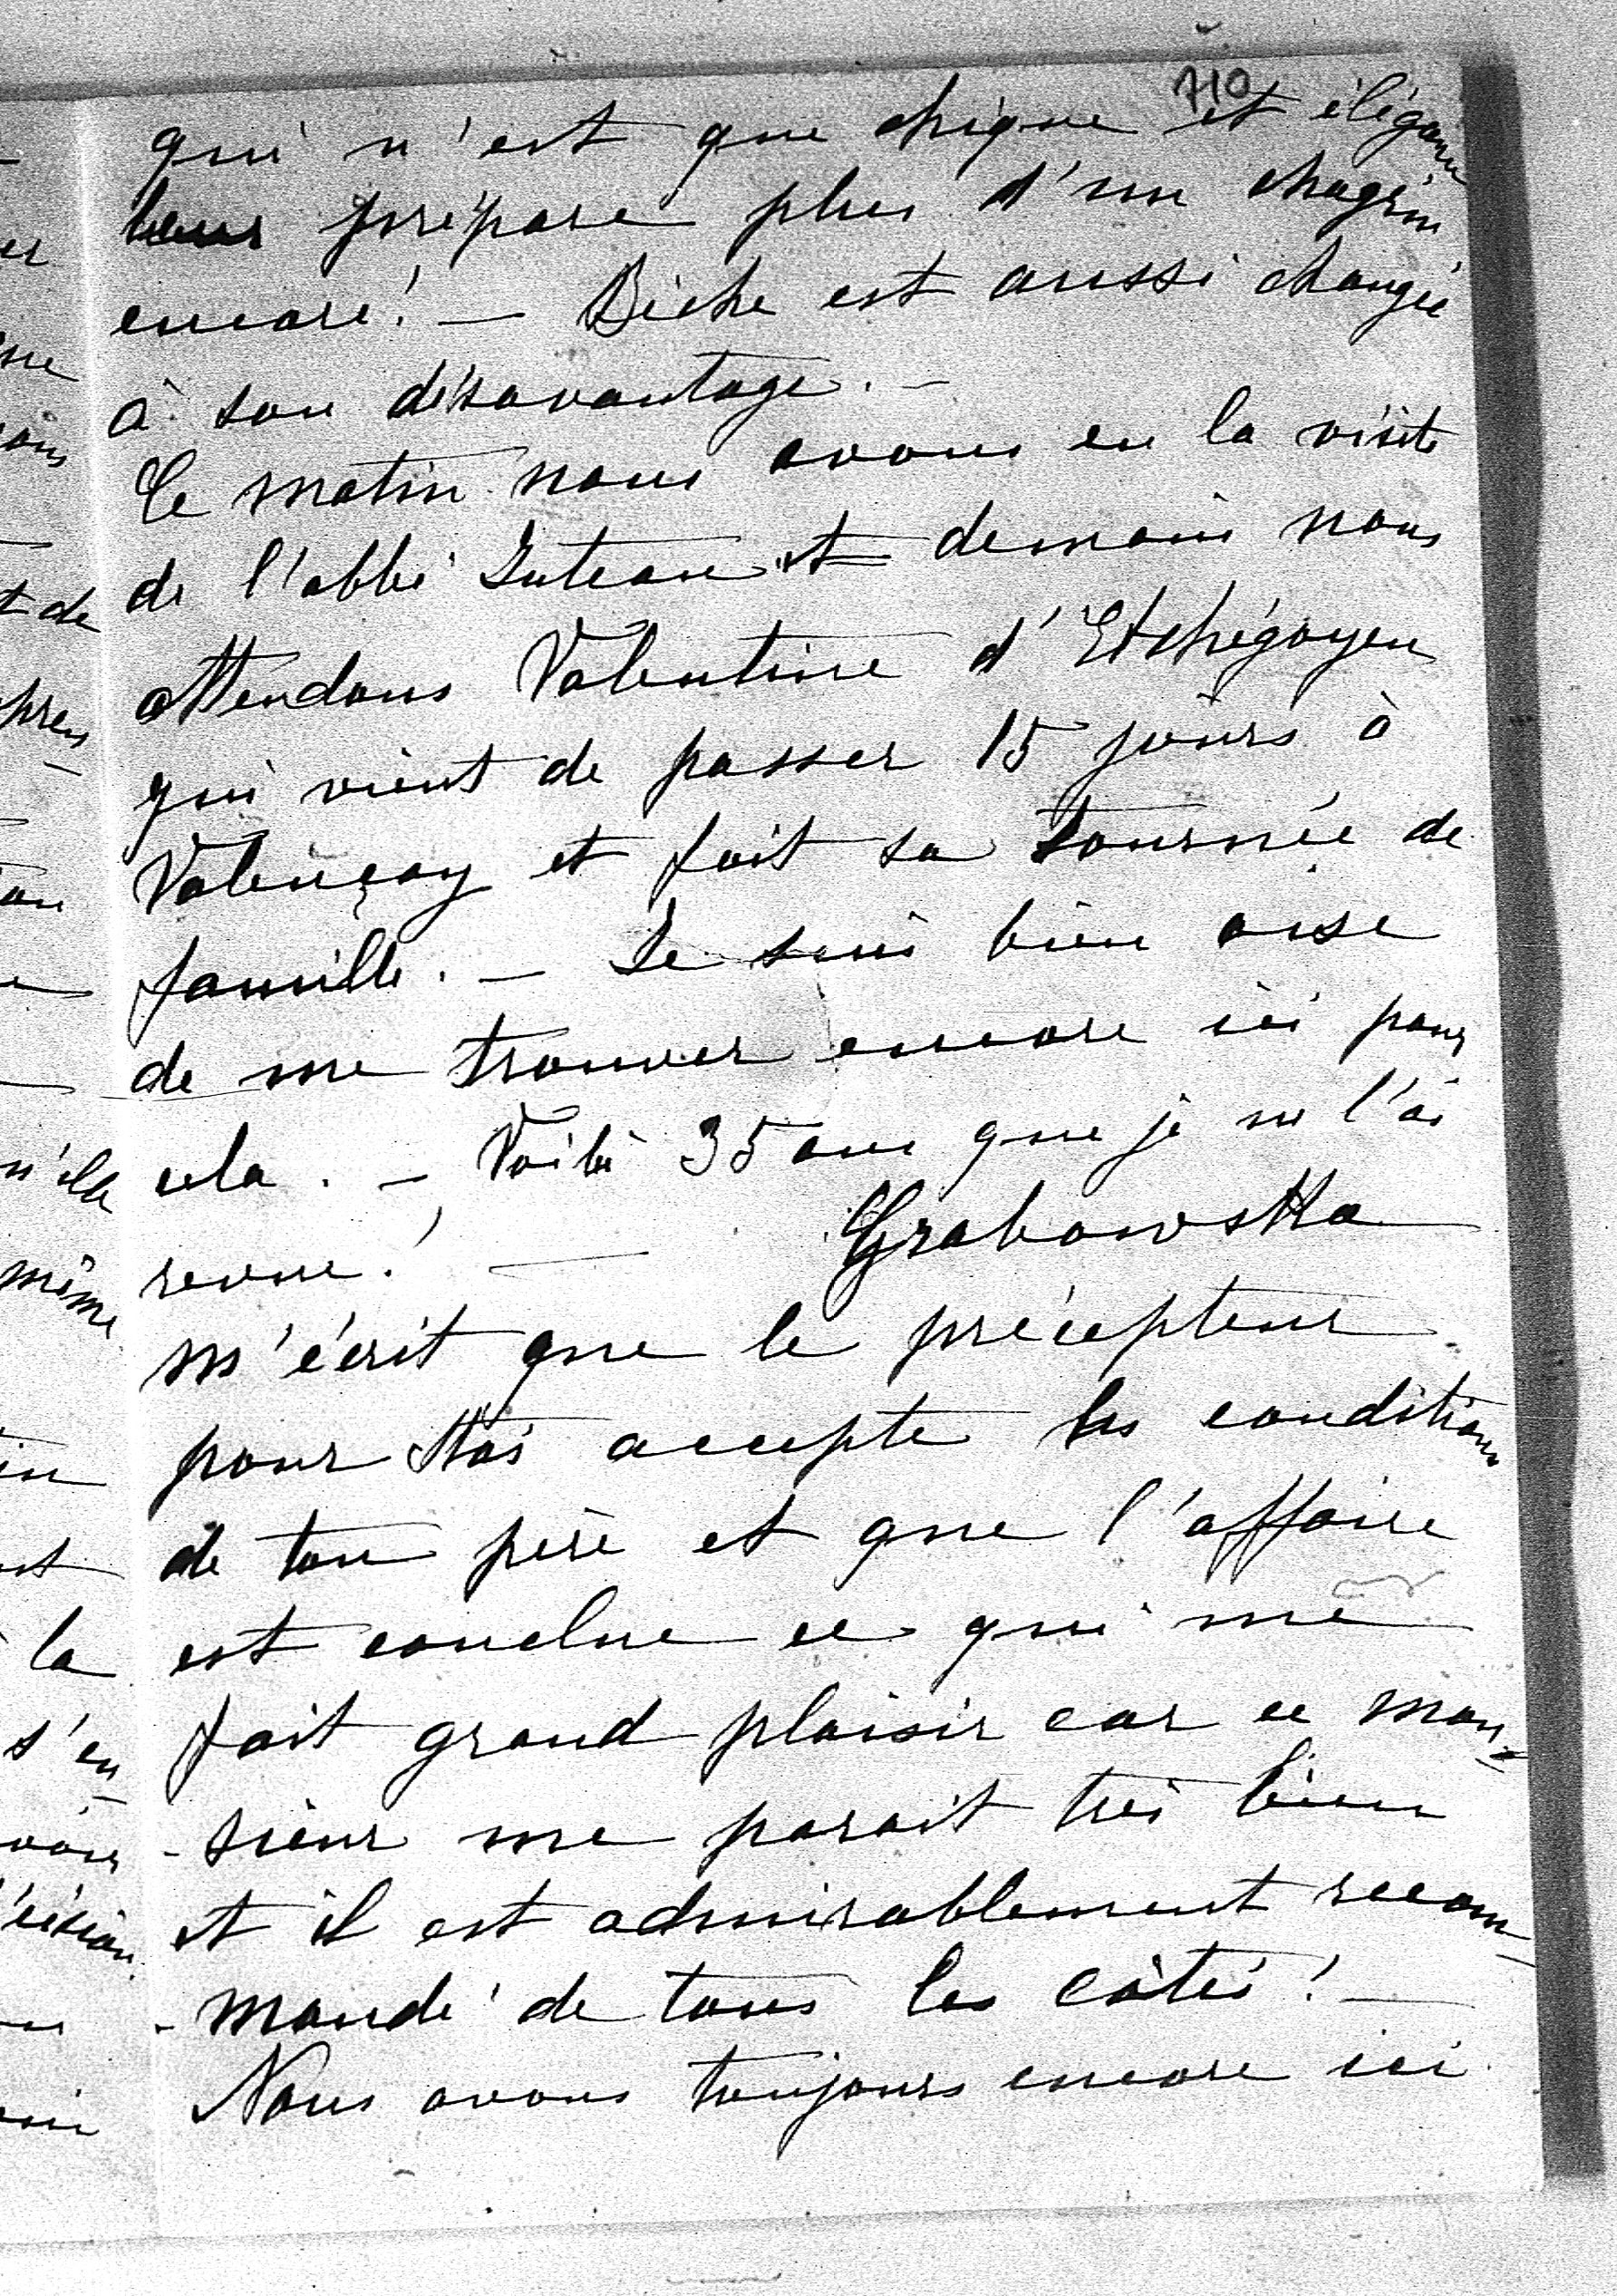 710
qui n'est que chique et élégan
leur prépare plus d'un chagrin
encore! — Biche est aussi changée
à son désavantage. —
Ce matin nous avons eu la visite
de l'abbé et demain nous
attendons Valentine d'Etchégoyen
qui vient de passer 15 jours à
Valençay et fait sa tournée de
famille. — Je suis bien aise
de me trouver encore ici pour
cela. — Voilà 35 ans que je ne l'ai
revue! — Grabowska
m'écrit que le précepteur
pour Stas accepte les conditions
de ton père et que l'affaire
est conclue ce qui me
fait grand plaisir car ce mon-
-sieur me parait très bien
et il est admirablement recom-
-mandé de tous les côtés! —
Nous avons toujours encore ici